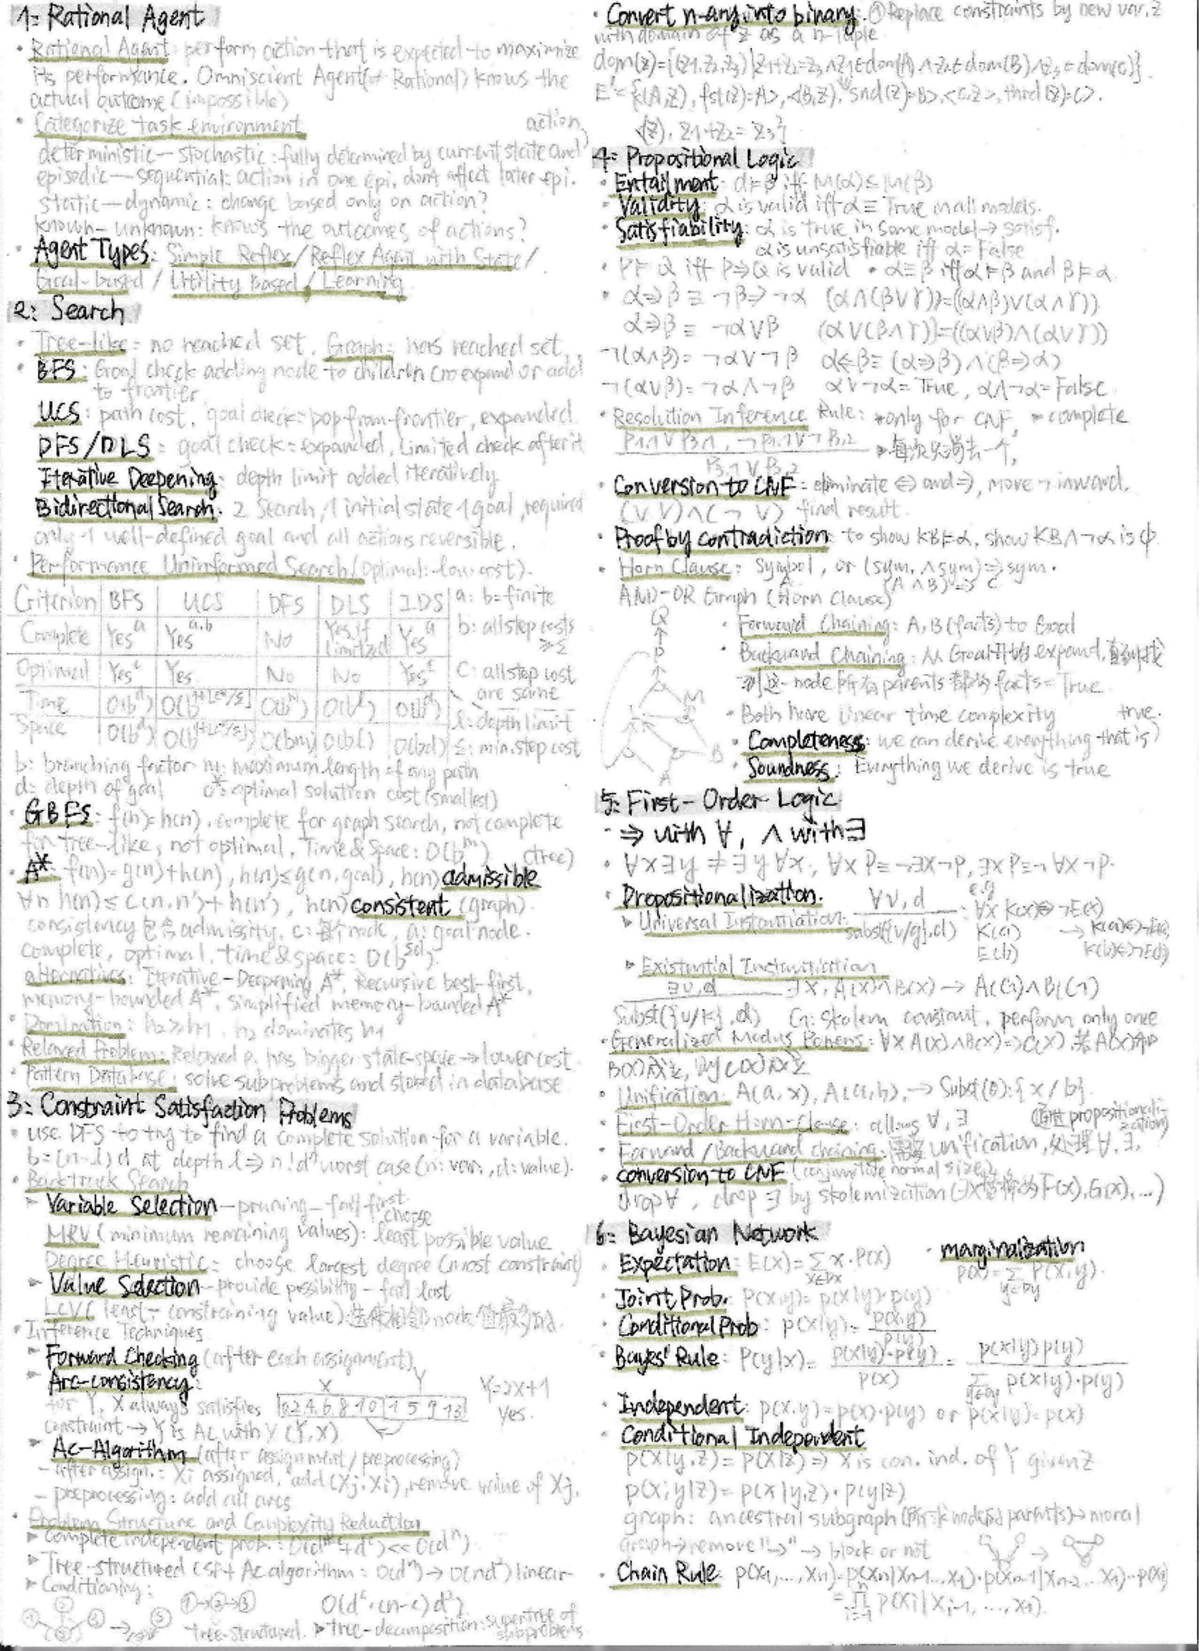 1: Rational Agent
• Rational Agent: perform action that is expected to maximize
its performance. Omniscient Agent(≠ Rational) knows the
actual outcome (impossible)
• Categorize task environment
action,
deterministic — stochastic: fully determined by current state and
episodic — sequential: action in one epi. don't affect later epi.
static — dynamic: change based only on action?
known — unknown: knows the outcomes of actions?
• Agent Types: Simple Reflex / Reflex Agent with State /
Goal-based / Utility Based / Learning
2: Search
• Tree-like: no reached set, Graph: has reached set,
• BFS: Goal check adding node to children (no expand or add
to frontier
UCS: path cost, goal check: pop-from-frontier, expanded.
DFS/DLS: goal check: expanded, limited check after it
Iterative Deepening: depth limit added iteratively
Bidirectional Search: 2 Search / 1 initial state 1 goal, required
only 1 well-defined goal and all actions reversible.
• Performance Uninformed Search (optimal: low cost).
Criterion BFS UCS DFS DLS IDS a: b=finite
Complete Yes^a Yes^a,b No Yes if limited Yes^a b: all step costs ≥ε
Optimal Yes^c Yes No No Yes^c c: all step cost are same
Time O(b^d) O(b^1+[c*/ε]) O(b^m) O(b^l) O(b^d) l: depth limit
Space O(b^d) O(b^1+[c*/ε]) O(bm) O(bl) O(bd) ε: min. step cost
b: branching factor m: maximum length of any path
d: depth of goal c*: optimal solution cost (smallest)
• GBFS: f(n)=h(n), complete for graph search, not complete
for tree-like, not optimal, Time & Space: O(b^m)
(tree)
• A*: f(n)=g(n)+h(n), h(n)≤g(n, goal), h(n) admissible
∀n h(n) ≤ c(n,n')+h(n'), h(n) consistent (graph)
consistency 包含 admissity, c: node, a: goal node.
complete, optimal, time & space: O(b^sol).
alternatives: Iterative-Deepening A*, Recursive best-first,
memory-bounded A*, simplified memory-bounded A*
• Domination: h2≥h1, h2 dominates h1
• Relaxed Problem: Relaxed p. has bigger state-space → lower cost
• Pattern Database: solve subproblems and stored in database
3: Constraint Satisfaction Problems
• use DFS to try to find a complete solution for a variable.
b=(n-l)d at depth l ⇒ n!d^n worst case (n: var., d: value).
• Backtrack Search
▸ Variable Selection — pruning — fail-first
choose
MRV (minimum remaining values): least possible value
Degree Heuristic: choose largest degree (most constraint)
▸ Value Selection — provide possibility — fail last
LCV (least-constraining value): node
• Inference Techniques
▸ Forward Checking (after each assignment)
▸ Arc-consistency: X Y Y=2x+1
for Y, X always satisfies 0 2 4 6 8 10 1 5 9 13 Yes.
constraint → Y is AC with X (Y, X)
▸ Ac-Algorithm (after assignment / preprocessing)
— after assign.: Xi assigned, add (Xj, Xi), remove value of Xj.
— preprocessing: add all arcs
• Problem Structure and Complexity Reduction
▸ complete independent prob.:
▸ Tree-structured CSP + Ac algorithm: O(d^n) → O(nd²) linear
▸ Conditioning:
①→②→③ O(d^c·(n-c)d²)
tree-structured. ▸ Tree-decomposition: supertribe of
subproblems
• Convert n-any into binary: ① Replace constraints by new var, z
with domain of z as a n-tuple
dom(z)={(z1,z2,z3)|z1+z2=z3∧z1∈dom(A)∧z2∈dom(B)∧z3∈dom(C)}.
E'={<(A,z), fst(z)=A>, <(B,z), snd(z)=B>, <(C,z), thrd(z)=C>.
<(z), z1+z2=z3>}
4: Propositional Logic
• Entailment: α⊨β iff M(α)⊆M(β)
• Validity: α is valid iff α≡True in all models.
• Satisfiability: α is true in some model → satisf.
α is unsatisfiable iff α=False
• P⊨Q iff P⇒Q is valid • α≡β iff α⊨β and β⊨α
• α⇒β ≡ ¬β⇒¬α (α∧(β∨γ))=((α∧β)∨(α∧γ))
α⇒β ≡ ¬α∨β (α∨(β∧γ))=((α∨β)∧(α∨γ))
¬(α∧β)=¬α∨¬β α⇔β≡(α⇒β)∧(β⇒α)
¬(α∨β)=¬α∧¬β α∨¬α=True, α∧¬α=False
• Resolution Inference Rule: *only for CNF, * complete
P1,1∨P3,1, ¬P1,1∨¬P2,2 ▸每次只消去一个
P3,1∨¬P2,2
• Conversion to CNF: eliminate ⇔ and ⇒, move ¬ inward,
(∨∨)∧(¬∨) final result
• Proof by contradiction: to show KB⊨α, show KB∧¬α is ϕ.
• Horn Clause: Symbol, or (sym. ∧ sym) ⇒ sym.
(A∧B)⇒C
AND-OR Graph (Horn Clause)
Q
P
M
L
B
A
• Forward Chaining: A, B (facts) to Goal
• Backward Chaining: 从 Goal 开始 expand, 直到找
到这 node 所有 parents 都为 facts = True
• Both have linear time complexity true.
• Completeness: we can derive everything that is
• Soundness: Everything we derive is true
5: First-Order Logic
• ⇒ with ∀, ∧ with ∃
• ∀x∃y ≠ ∃y∀x, ∀x P≡¬∃x¬P, ∃x P≡¬∀x¬P.
• Propositionalization. ∀v,α e.g
▸ Universal Instantiation: subst({v/g},α) ∀x K(x)⇔¬E(x)
K(a) → K(a)⇔¬E(a)
E(b) K(b)⇔¬E(b)
▸ Existential Instantiation
∃v,α ∃x, A(x)∧B(x) → A(C1)∧B(C1)
Subst({v/k},α) C1: skolem constant, perform only once
• Generalized Modus Ponens: ∀x A(x)∧B(x)⇒C(x), 若A(x)和
B(x)成立, 则C(x)成立
• Unification: A(a,x), A(a,b), → Subst(θ):{x/b}.
• First-Order Horn-Clause: allows ∀, ∃ propositionali-
zation)
• Forward/Backward chaining: 需要 unification, 处理 ∀, ∃,
• conversion to CNF (conjunctive normal size),
drop ∀, drop ∃ by skolemization (∃x F(x), G(x), ...)
6: Bayesian Network
• Expectation: E(x)=Σ x·P(x) • marginalization
x∈Dx p(x)=Σ P(x,y).
• Joint Prob.: P(x,y)=p(x|y)·p(y) y∈Dy
• Conditional Prob: p(x|y)= p(x,y)
p(y)
• Bayes' Rule: P(y|x)= p(x|y)·p(y) = p(x|y)p(y)
p(x) Σ p(x|y)·p(y)
y∈Dy
• Independent: p(x,y)=p(x)·p(y) or p(x|y)=p(x)
• Conditional Independent
p(x|y,z)=p(x|z) ⇒ X is con. ind. of Y given Z
p(x,y|z)=p(x|y,z)·p(y|z)
graph: ancestral subgraph (所求node及parents) → moral
graph → remove "→" → block or not
• Chain Rule: p(x1,...,xn)=p(xn|xn-1...x1)·p(xn-1|xn-2...x1)...p(x1)
=∏ p(xi|xi-1,...,x1).